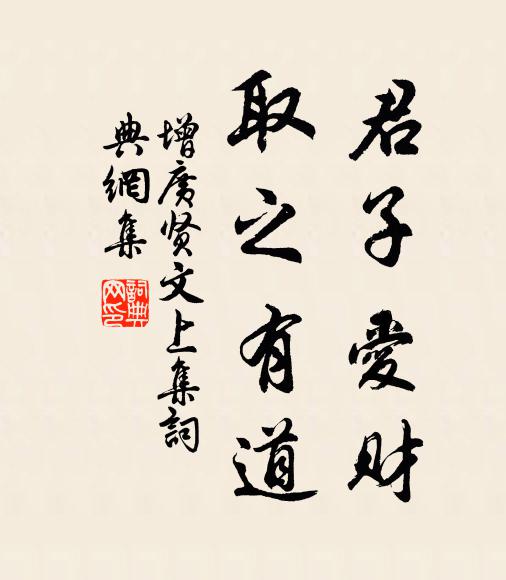 君子愛财
取之有道
增廣贤文上集詞
典網集
詞典
网印